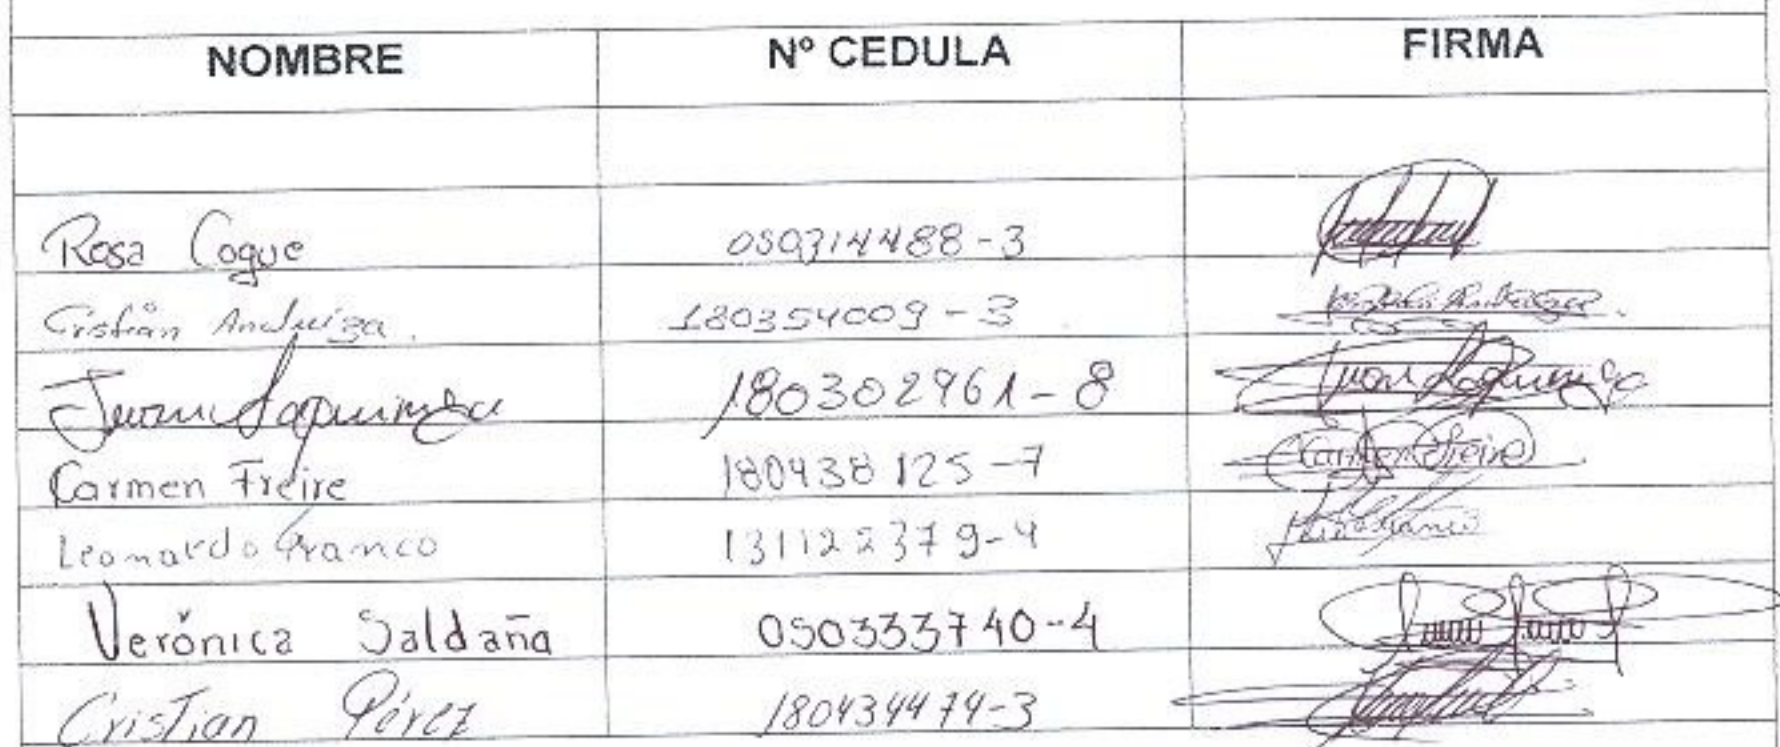 NOMBRE Nº CEDULA FIRMA
Rosa Coque 050314488-3
Cristian Andueza. 180354009-3
Juan Saquinga 180302961-8 Juan Saquinga
Carmen Freire 180438125-7 Carmen Freire
Leonardo Franco 131122379-4
Verónica Saldaña 050333740-4
Cristian Pérez 180434474-3